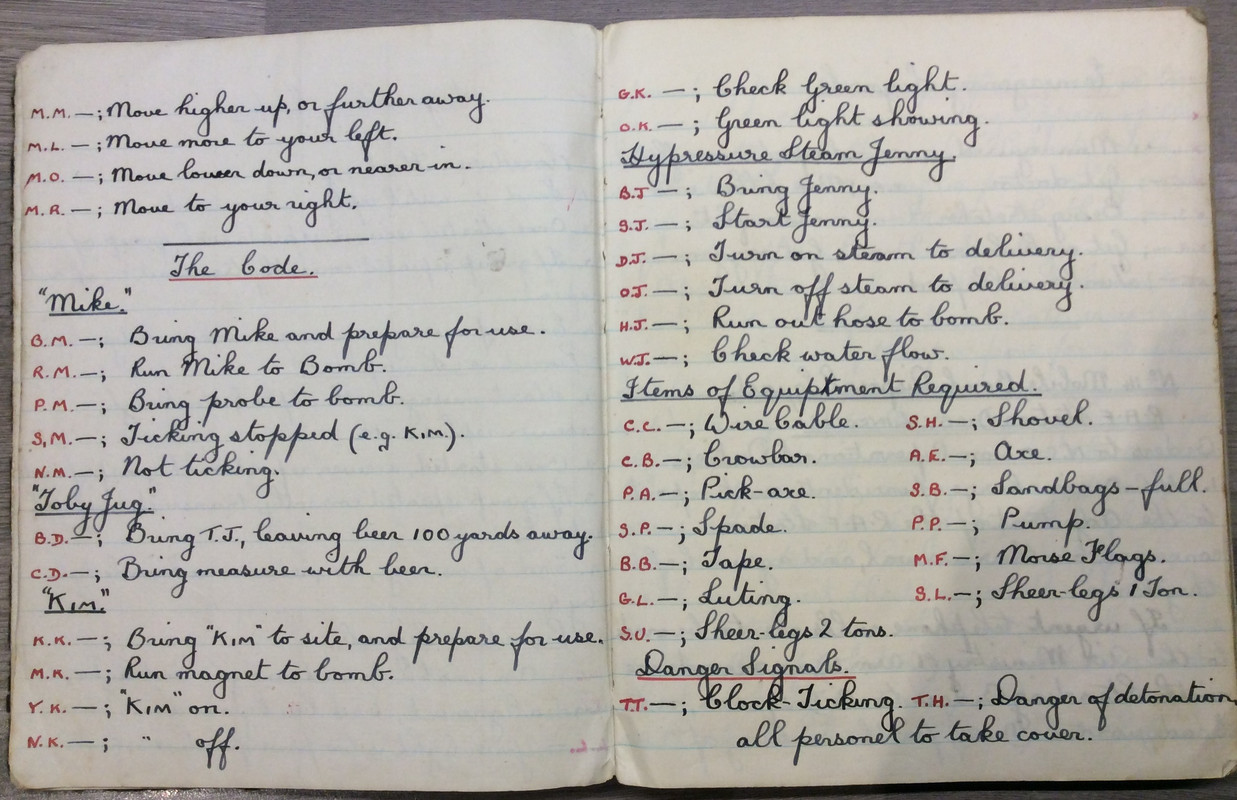 M.M. —; Move higher up, or further away.
M.L. —; Move more to your left.
M.O. —; Move lower down, or nearer in.
M.R. —; Move to your right.
The Code.
"Mike."
B.M. —; Bring Mike and prepare for use.
R.M. —; Run Mike to Bomb.
P.M. —; Bring probe to bomb.
S.M. —; Ticking stopped (e.g. KIM).
N.M. —; Not ticking.
"Toby Jug."
B.D. —; Bring T.J., leaving beer 100 yards away.
C.D. —; Bring measure with beer.
"KIM"
K.K. —; Bring "KIM" to site, and prepare for use.
M.K. —; Run magnet to bomb.
Y.K. —; "KIM" on.
N.K. —; " off.
G.K. —; Check Green light.
O.K. —; Green light showing.
Hypressure Steam Jenny.
B.J —; Bring Jenny.
S.J. —; Start Jenny.
D.J. —; Turn on steam to delivery.
O.J. —; Turn off steam to delivery.
H.J. —; Run out hose to bomb.
W.J. —; Check water flow.
Items of Equiptment Required.
C.C. —; Wire Cable. S.H. —; Shovel.
C.B. —; Crowbar. A.E. —; Axe.
P.A. —; Pick-axe. S.B. —; Sandbags – full.
S.P. —; Spade. P.P. —; Pump.
B.B. —; Tape. M.F. —; Morse Flags.
G.L. —; Luting. S.L. —; Sheer-legs 1 Ton.
S.U. —; Sheer-legs 2 tons.
Danger Signals.
T.T. —; Clock-Ticking. T.H. —; Danger of detonation,
all personel to take cover.